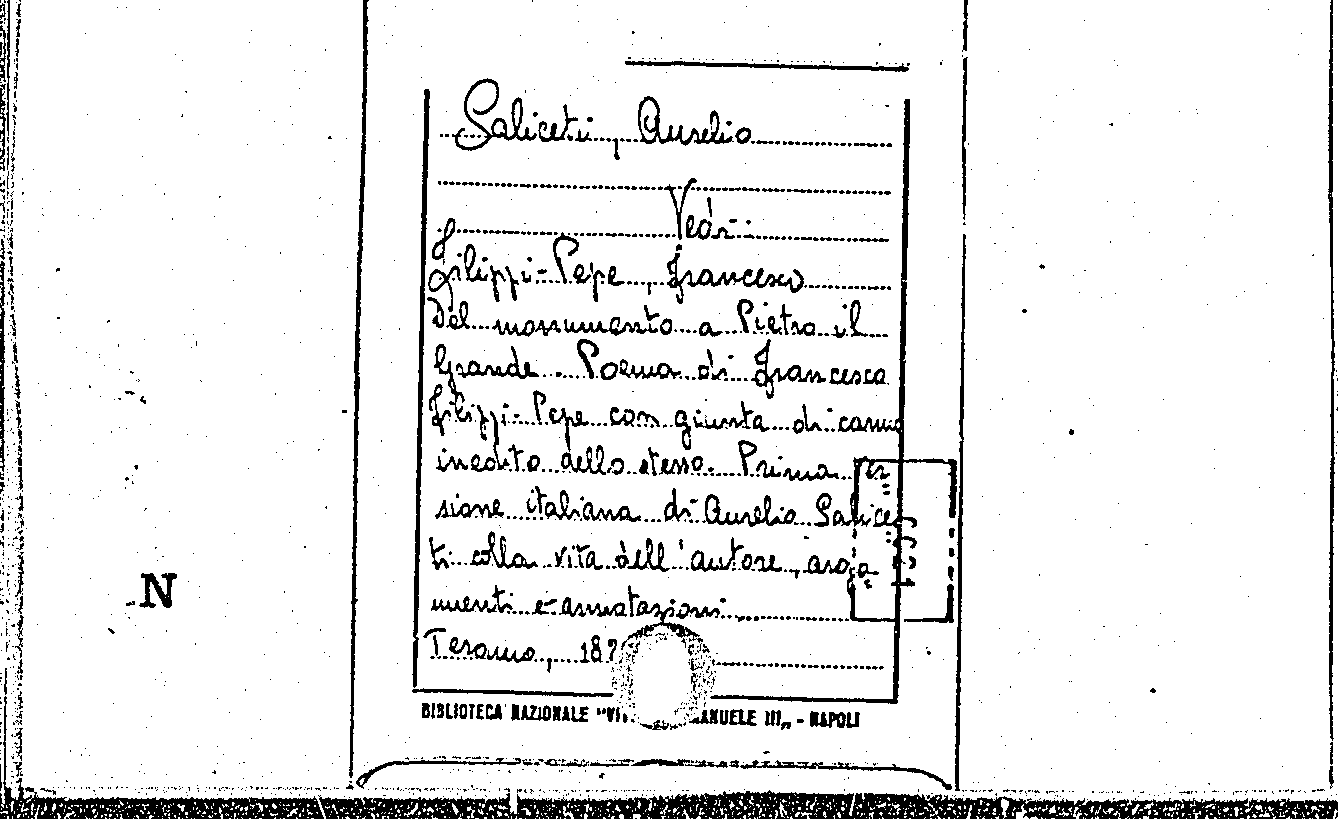 Saliceti, Aurelio
Vedi:
Filippi-Pepe, Francesco
Del monumento a Pietro il
Grande. Poema di Francesco
Filippi-Pepe con giunta di carme
inedito dello stesso. Prima ver
sione italiana di Aurelio Salice
ti colla vita dell'autore, argo
menti e annotazioni
Teramo, 187
N
BIBLIOTECA NAZIONALE "VI ANUELE III„ - NAPOLI